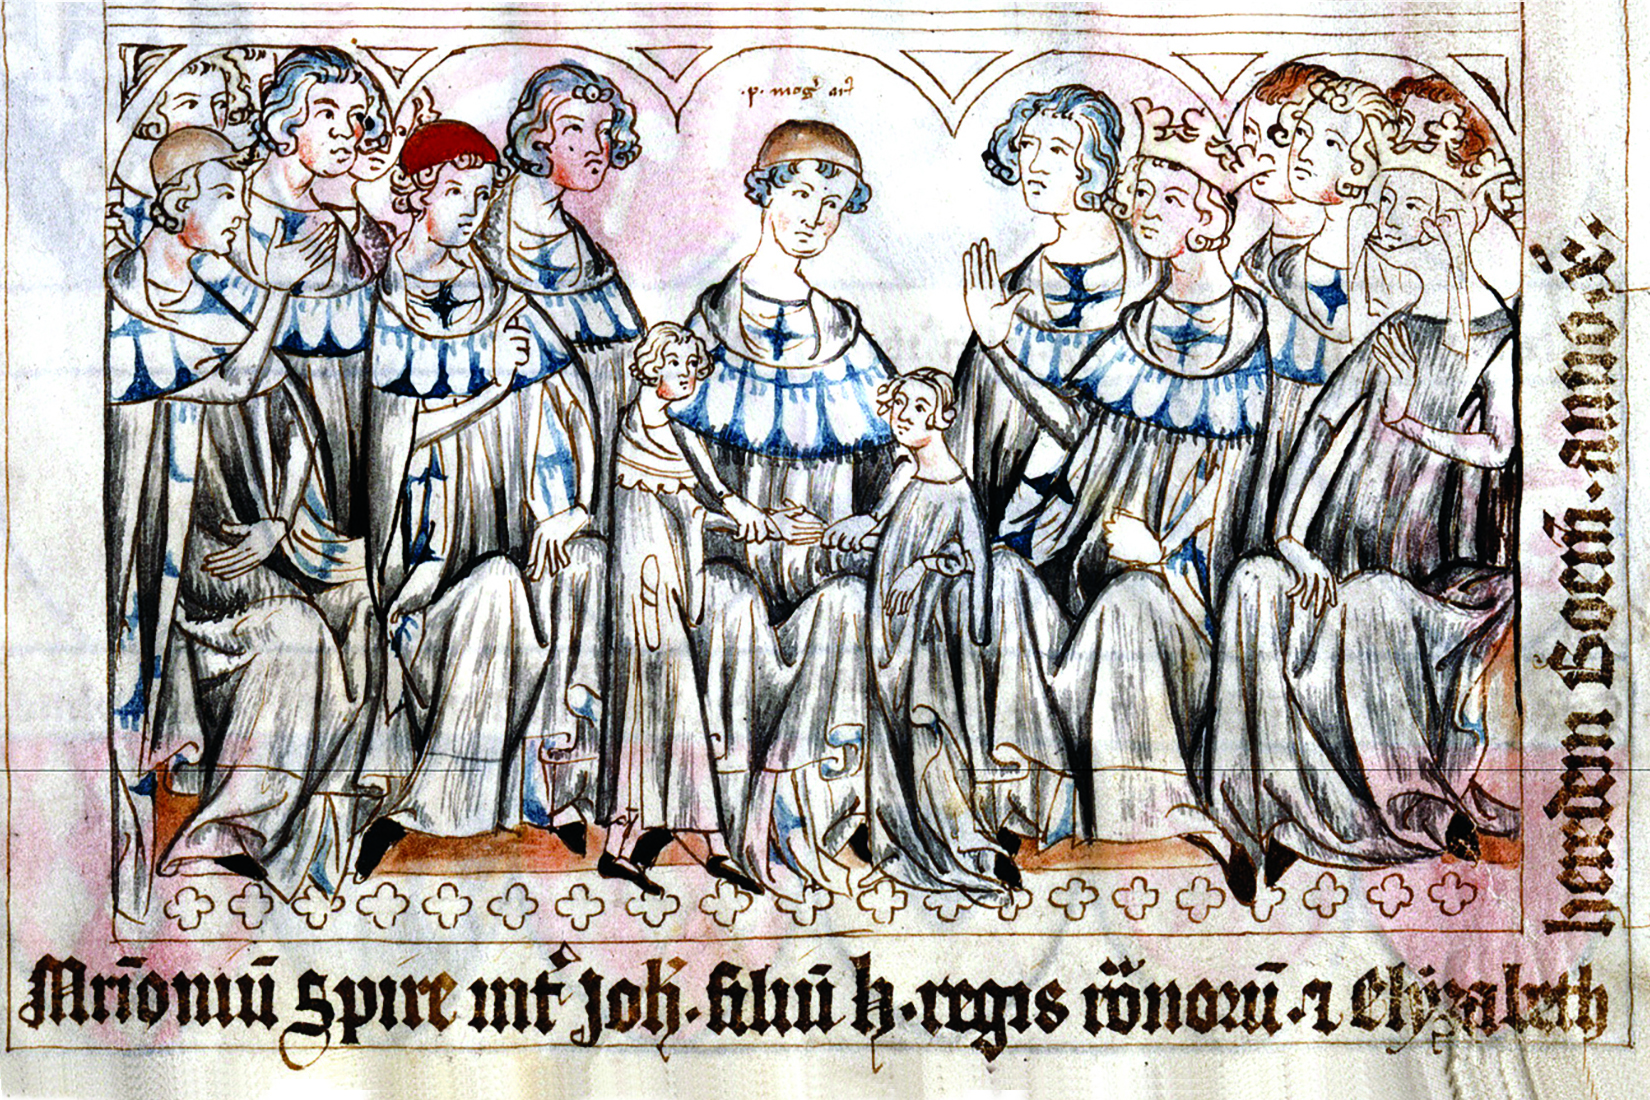 .p. mog̃ arͥ
Mr̃ioniũ Spire intͥ Joh̃. filiũ h. regis rõnorũ. ⁊ Elyzabeth
heredem Boem̃. anno. iͦ.